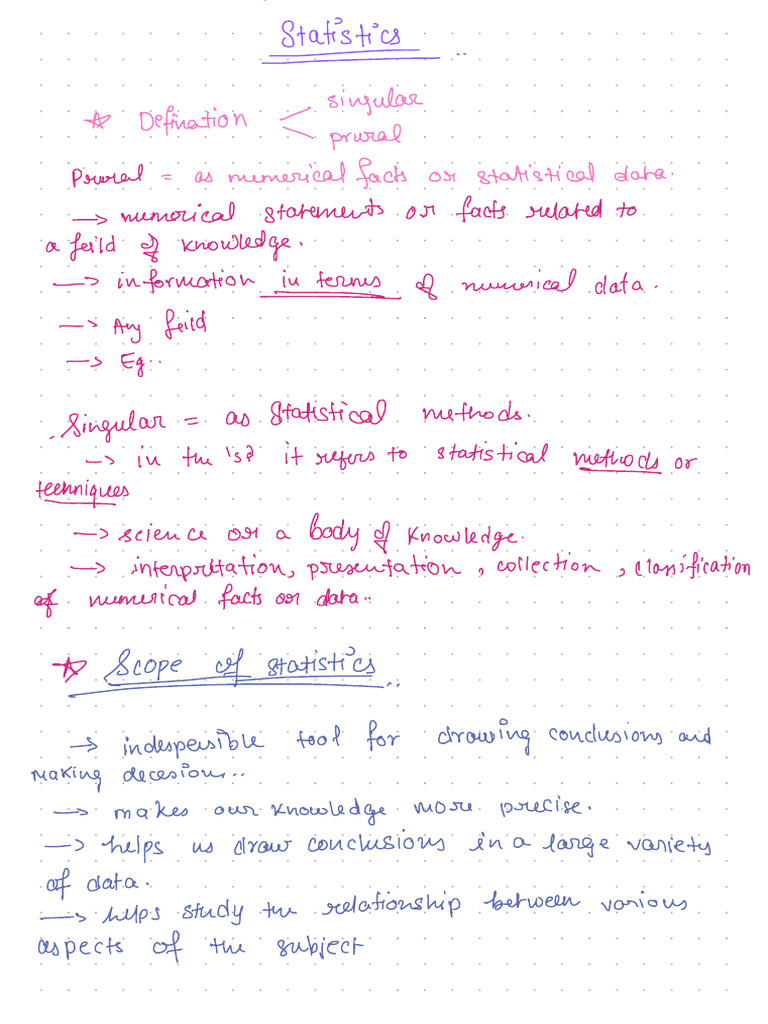 Statistics
☆ Defination
singular
prural
Prural = as numerical facts or statistical data.
→ numerical statements or facts related to
a feild of knowledge.
→ information in terms of numerical data.
→ Any feild
→ Eg..
Singular = as statistical methods.
→ in the 's' it refers to statistical methods or
teenniques
→ science or a body of knowledge.
→ interpretation, presentation, collection, classification
of numerical facts or data..
☆ Scope of statistics..
→ indespensible tool for drawing conclusions and
making decesion..
→ makes our knowledge more precise.
→ helps us draw conclusions in a large variety
of data.
→ helps study the relationship between various
aspects of the subject